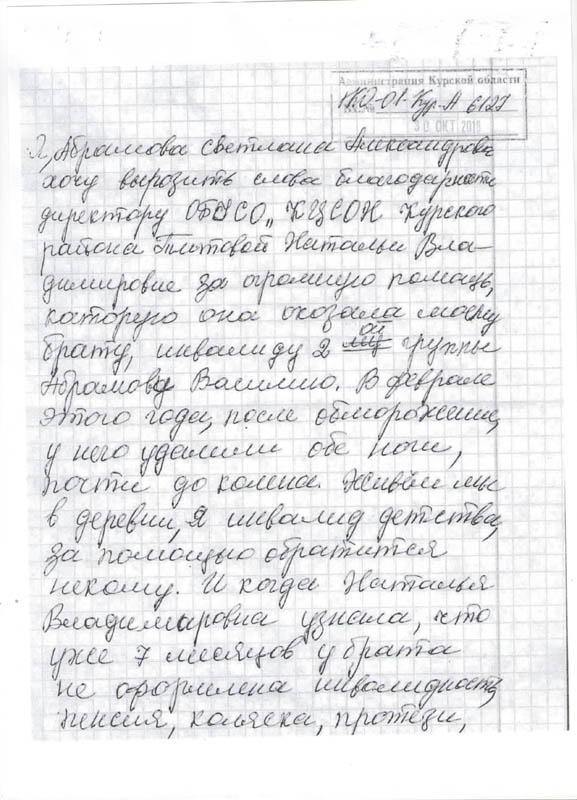 Администрация Курской области
ПО-01-Кур-А 6127
30 ОКТ 2019
Я, Абрамова Светлана Александровна
хочу вырозить слова благодарности
директору ОБУСО „ КЦСОН Курского
района Титовой Натальи Вла-
димировне за огромную помощь,
которую она оказала моему
брату, инвалиду 2 ой группы
Абрамову Василию. В феврале
этого года, после обморожения,
у него удалили обе ноги,
почти до колена. Живём мы
в деревни, я инвалид детства,
за помощью обратится
некому. И когда Наталья
Владимировна узнала, что
уже 7 месяцов у брата
не оформлена инвалидность,
пенсия, коляска, протези,